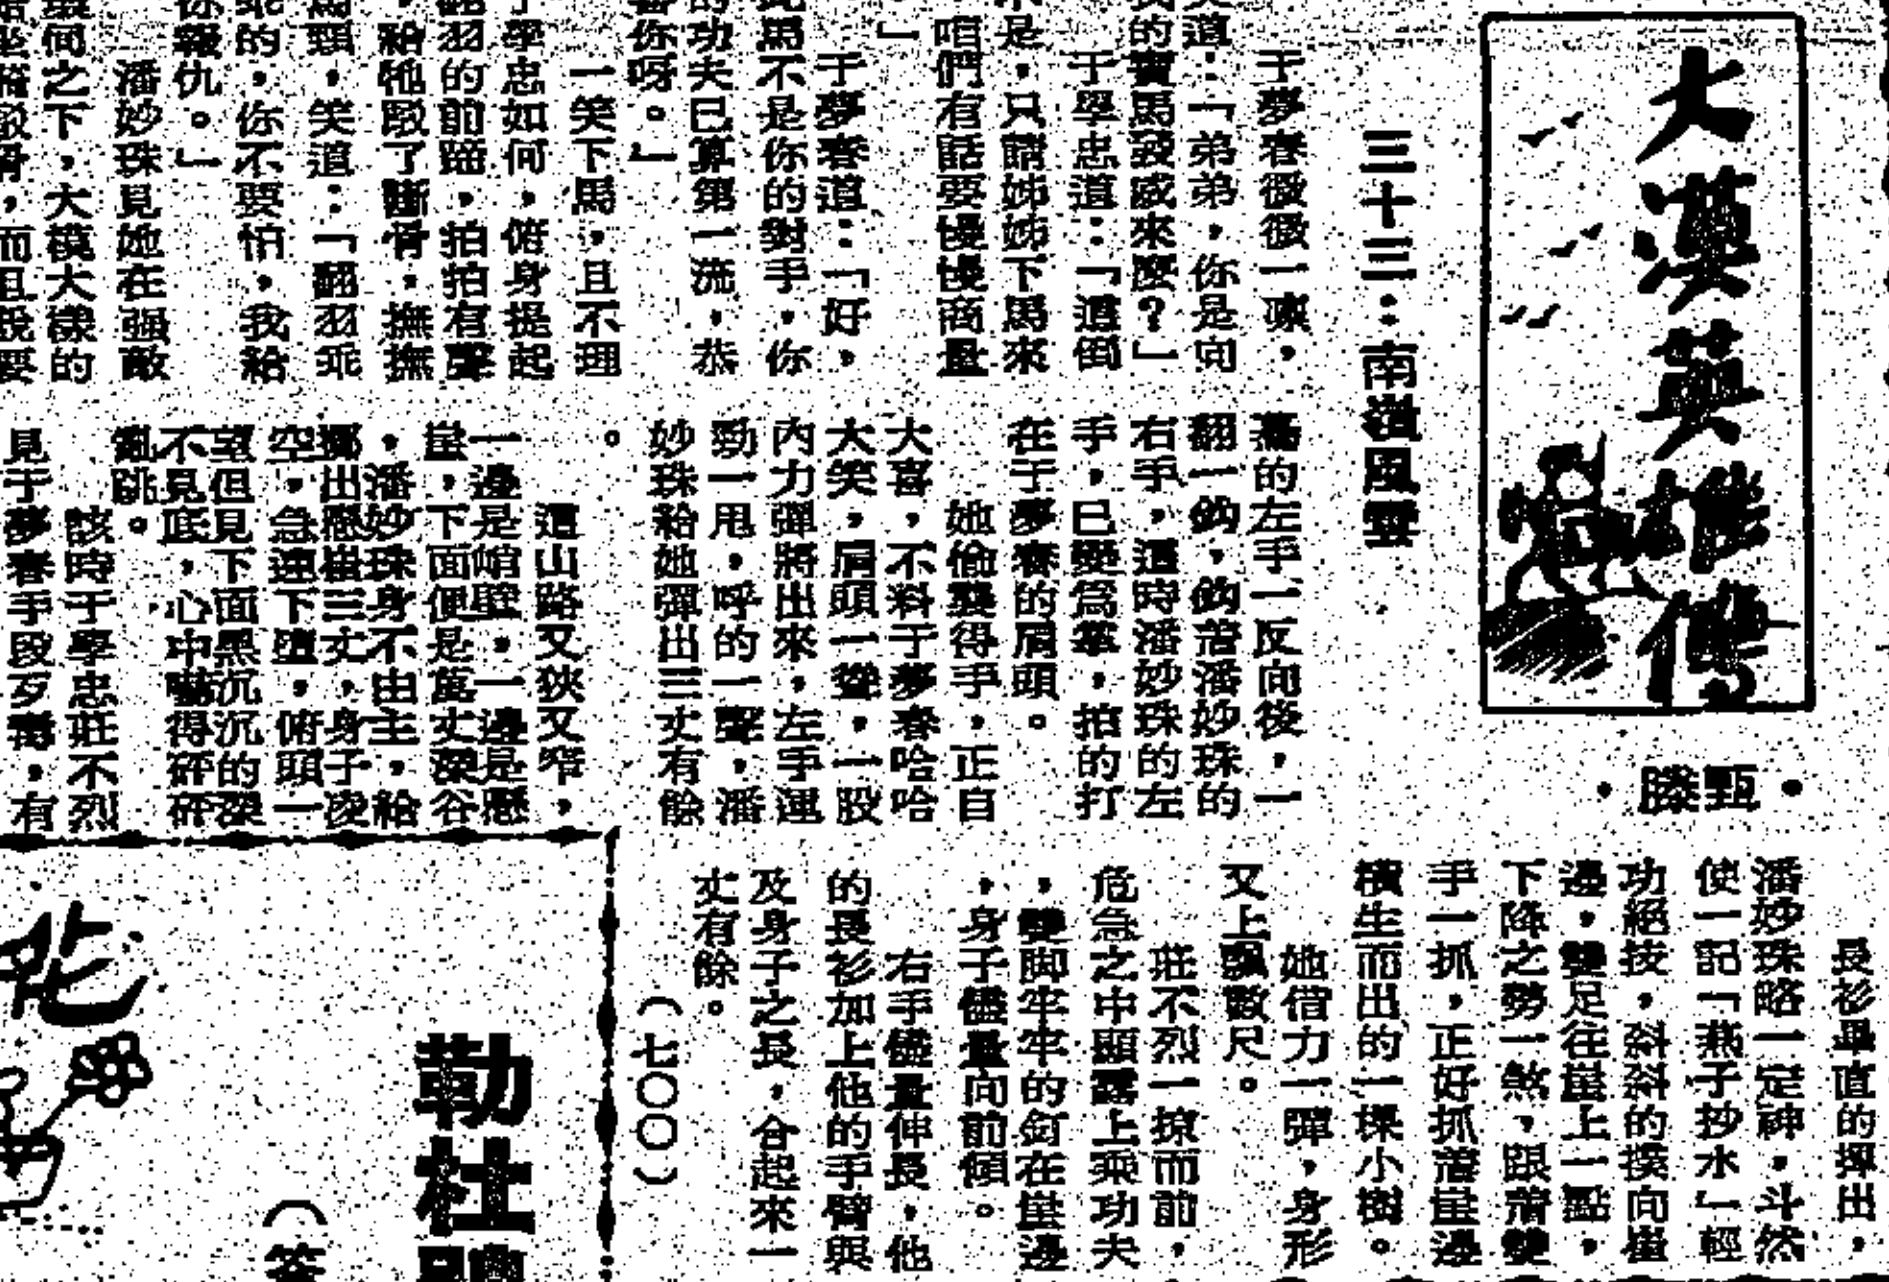 大漠英雄傳
•甄騰•
三十三：南嶺風雲
于夢春微微一凜，
笑道：「弟弟，你是向
我的寶馬發威來麼？」
于學忠道：「這倒
不是，只請姊姊下馬來
咱們有話要慢慢商量
。」
于夢春道：「好，
此馬不是你的對手，你
的功夫已算第一流，恭
喜你呀。」
一笑下馬，且不理
于學忠如何，俯身提起
翻羽的前蹄，拍拍有聲
，給牠駁了斷骨，撫撫
馬頸，笑道：「翻羽乖
乖的，你不要怕，我給
你報仇。」
潘妙珠見她在强敵
之下，大模大樣的
，而且說要
驀的左手一反向後，一
翻一鈎，鈎着潘妙珠的
右手，這時潘妙珠的左
手，已變爲掌，拍的打
在于夢春的肩頭。
她偷襲得手，正自
大喜，不料于夢春哈哈
大笑，肩頭一聳，一股
內力彈將出來，左手運
勁一甩，呼的一聲，潘
妙珠給她彈出三丈有餘
。
這山路又狹又窄，
一邊是峭壁，一邊是懸
崖，下面便是萬丈深谷
，潘妙珠身不由主，給
擲出懸崖三丈，身子凌
空，急速下墮，俯頭一
望但見下面黑沉沉的深
不見底，心中嚇得砰砰
亂跳。
該時于學忠莊不烈
見于夢春手段歹毒，有
長衫畢直的揮出，
潘妙珠略一定神，斗然
使一記「燕子抄水」輕
功絕技，斜斜的撲向崖
邊，雙足往崖上一點，
下降之勢一煞，跟着雙
手一抓，正好抓着崖邊
橫生而出的一棵小樹。
她借力一彈，身形
又上飄數尺。
莊不烈一掠而前，
危急之中顯露上乘功夫
，雙脚牢牢的釘在崖邊
，身子儘量向前傾。
右手儘量伸長，他
的長衫加上他的手臂與
及身子之長，合起來一
丈有餘。
（七〇〇）
勒杜鵑
（答